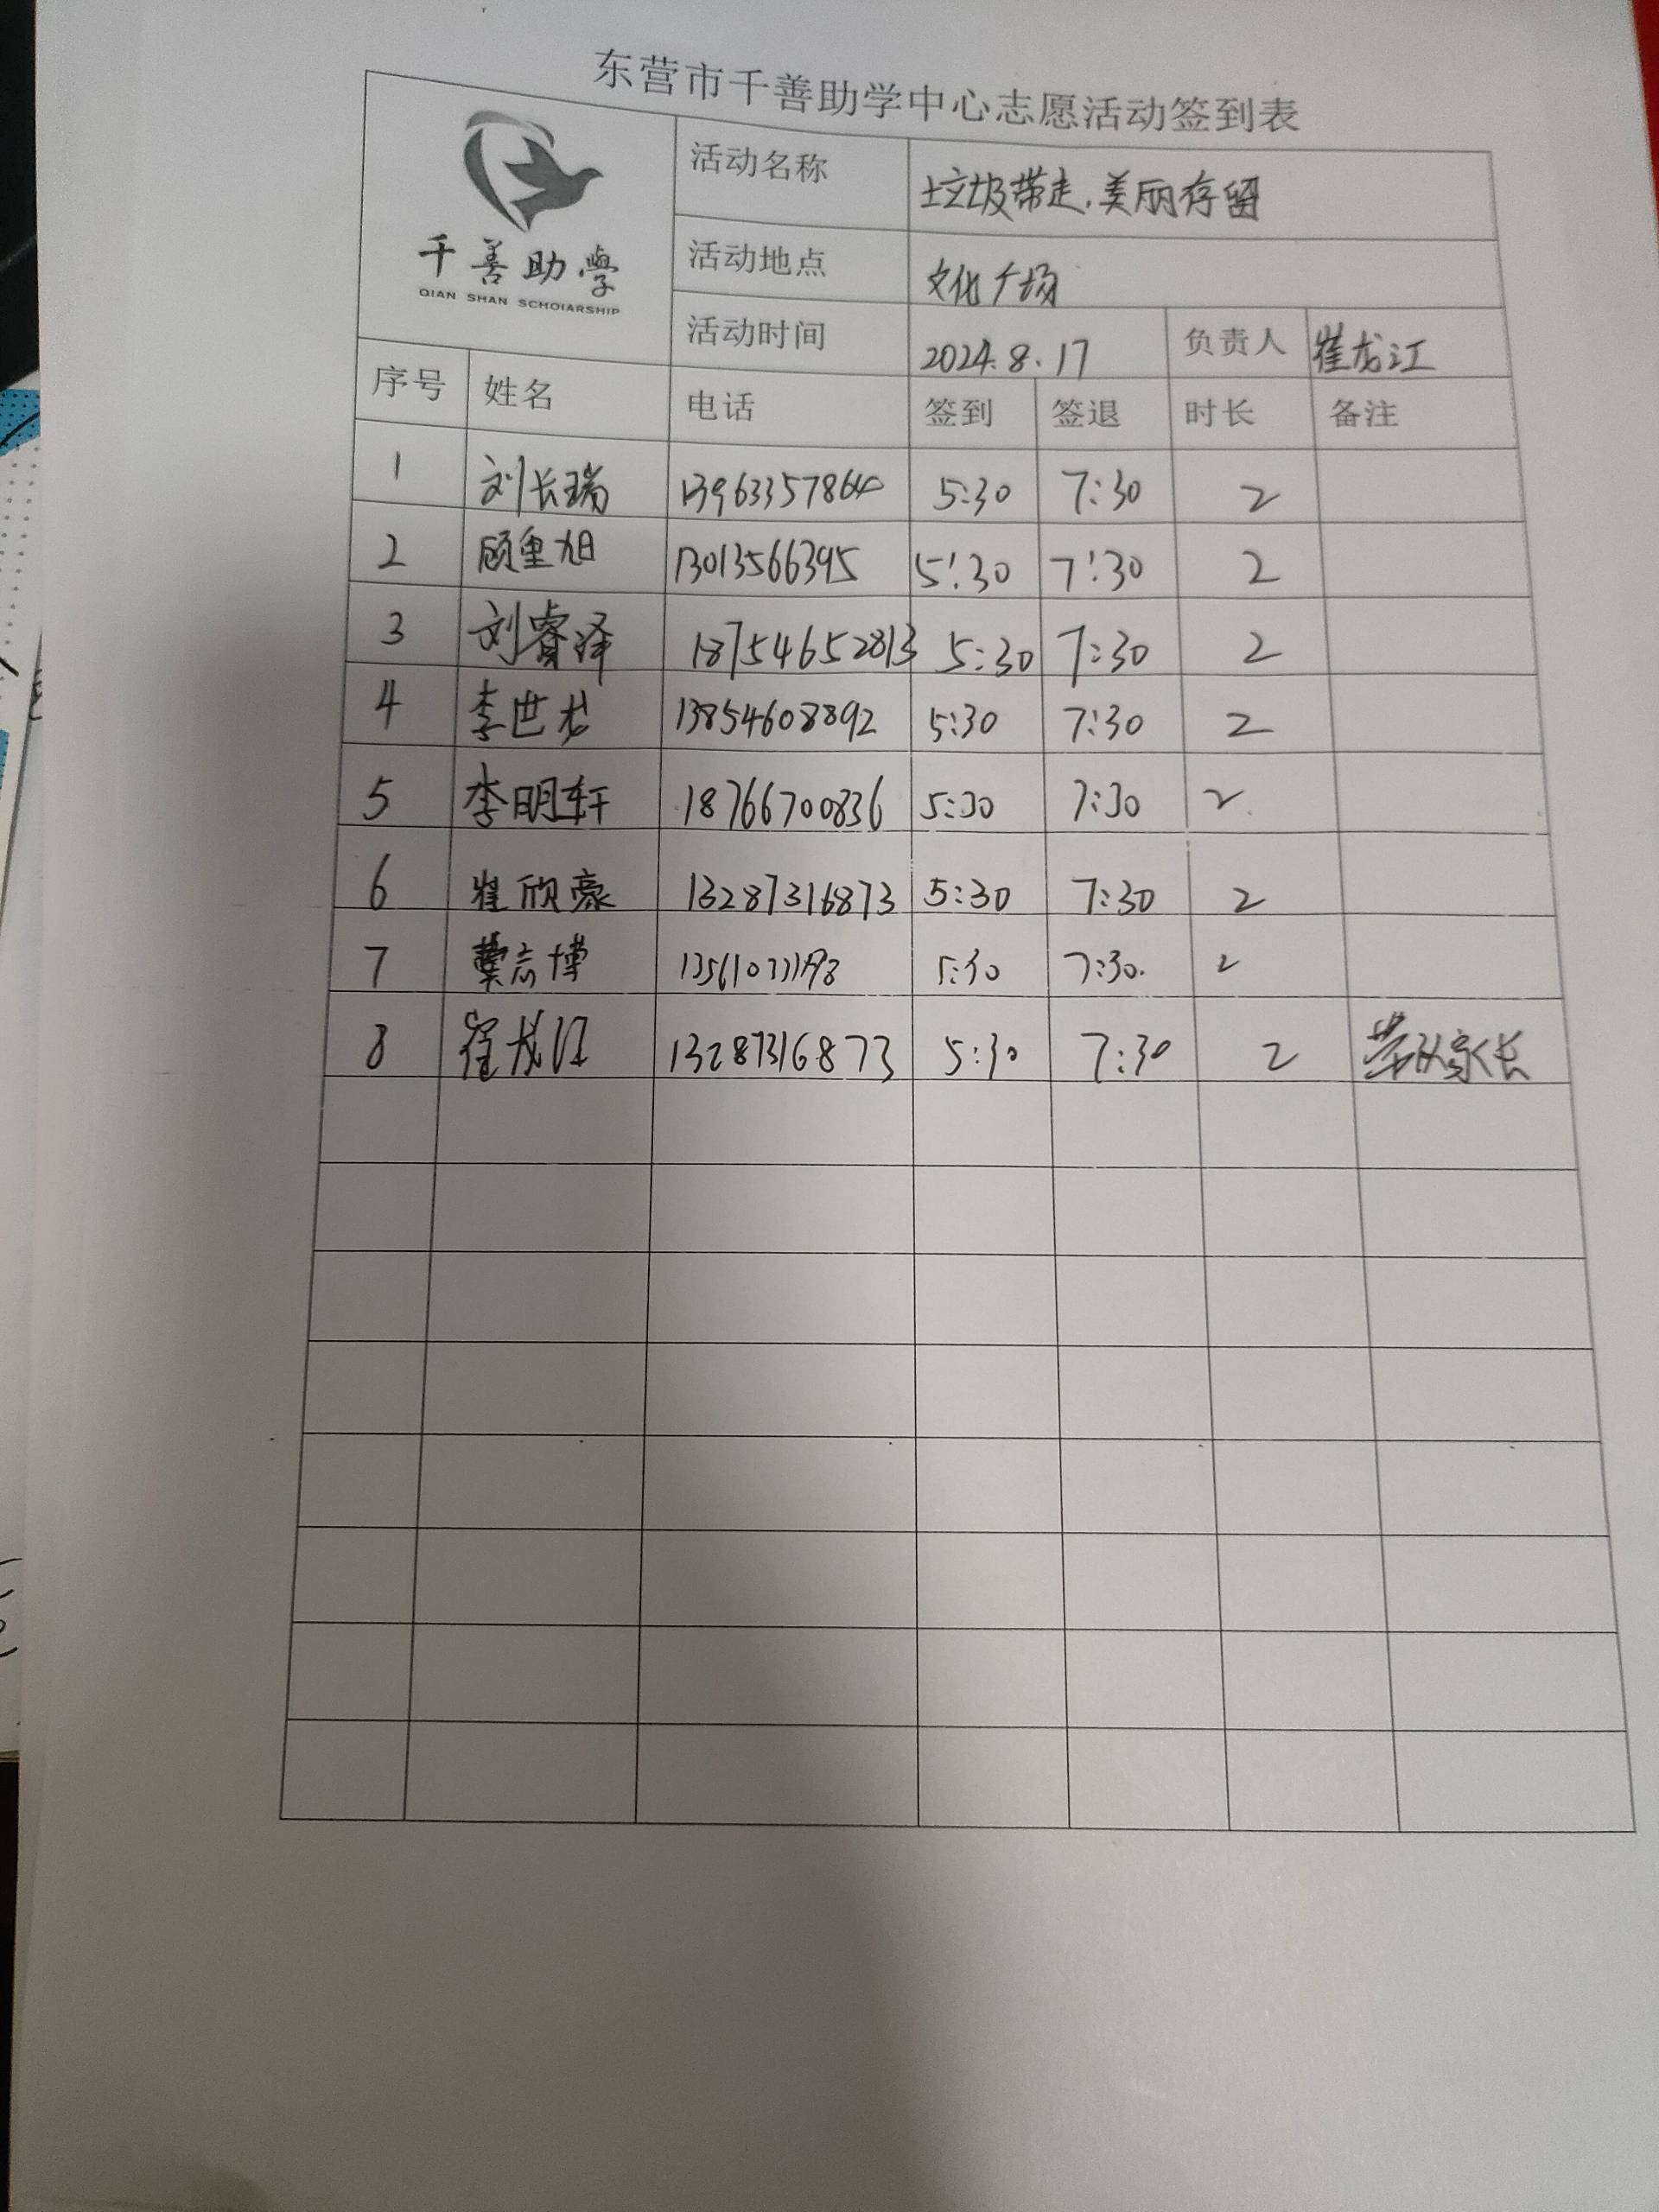 东营市千善助学中心志愿活动签到表
千善助學
QIAN SHAN SCHOIARSHIP
活动名称 垃圾带走,美丽存留
活动地点 文化广场
活动时间 2024.8.17 负责人 崔龙江
序号 姓名 电话 签到 签退 时长 备注
1 刘长瑞 5:30 7:30 2
2 顾里旭 13013566395 5:30 7:30 2
3 刘睿泽 18754652813 5:30 7:30 2
4 李世龙 13854608892 5:30 7:30 2
5 李明轩 18766700836 5:30 7:30 2
6 崔欣豪 13287316873 5:30 7:30 2
7 志博 5:30 7:30 2
8 崔龙江 13287316873 5:30 7:30 2 带队家长